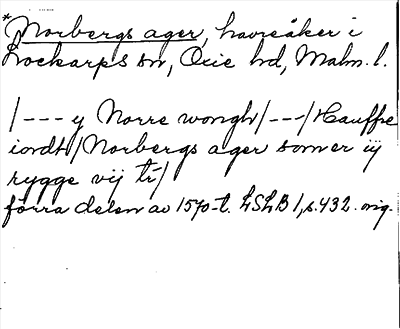 *Norbergs ager, havreåker i
Lockarps sn, Oxie hd, Malm. l.
/--- y Norre wongh/---/Hauffre
iordt/Norbergs ager som er iij
rygge vij tr/
förra delen av 1570-t. LSLB 1, s. 432. orig.